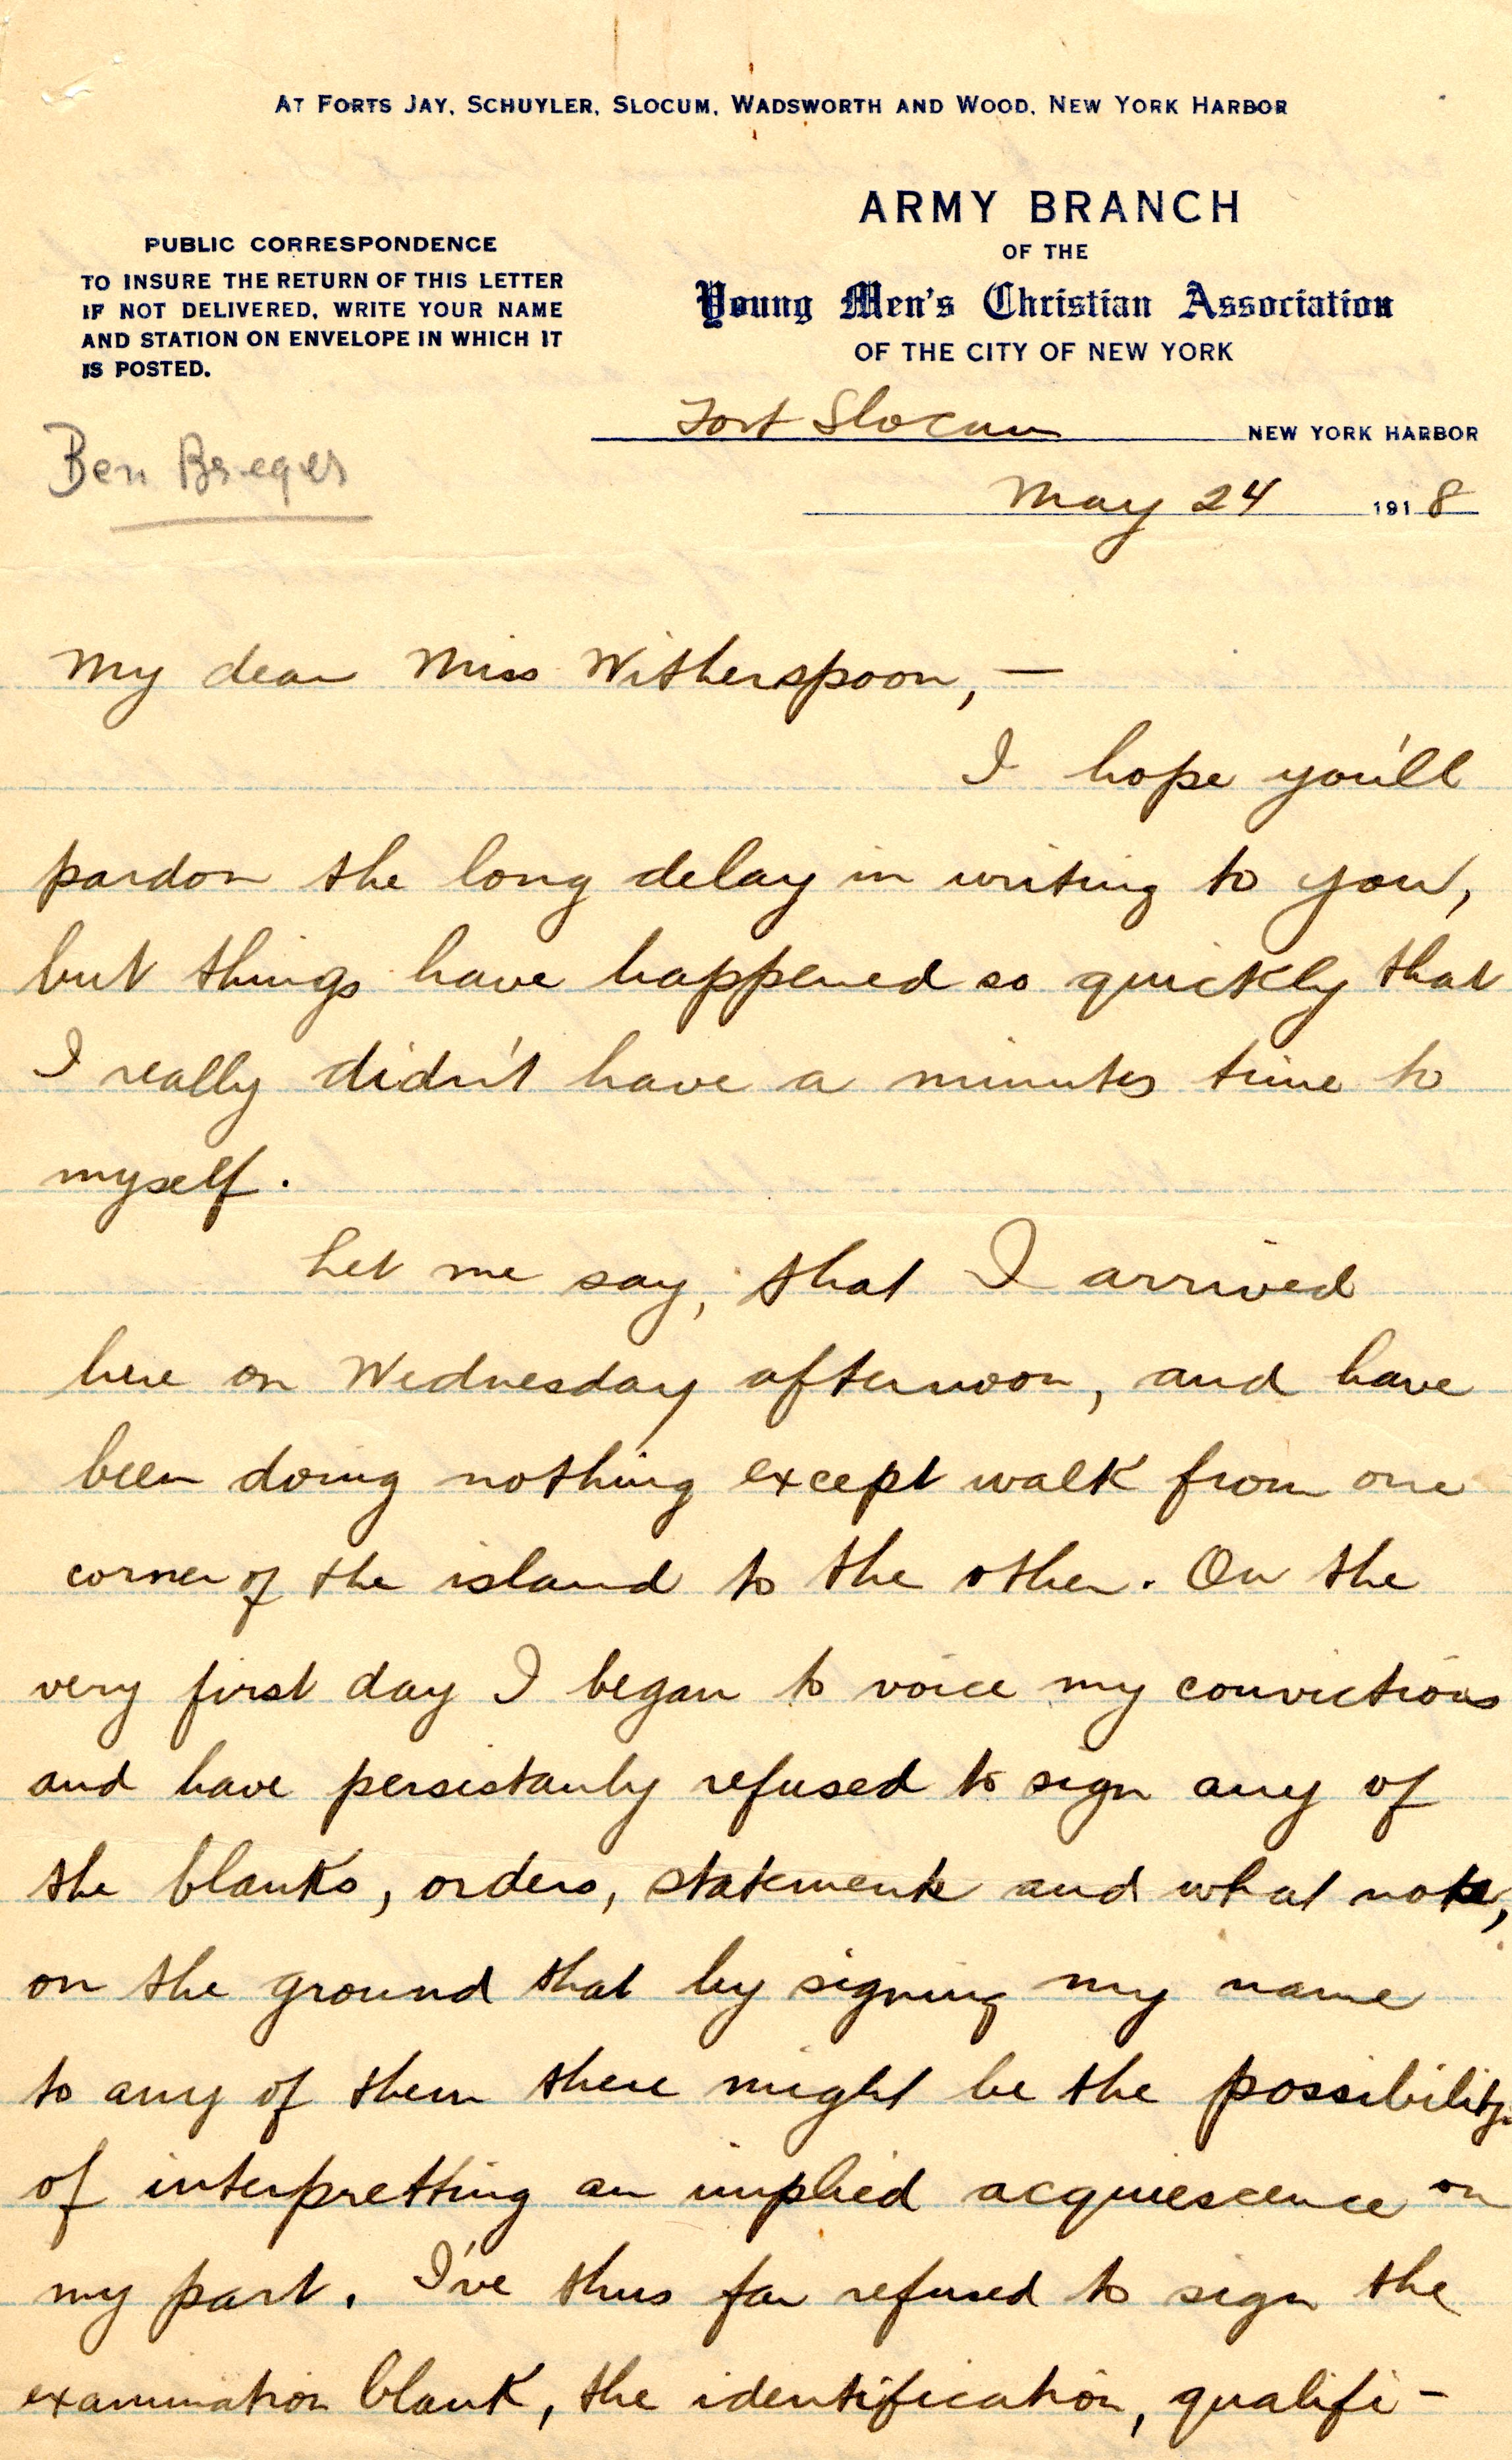 AT FORTS JAY, SCHUYLER, SLOCUM, WADSWORTH AND WOOD, NEW YORK HARBOR
PUBLIC CORRESPONDENCE
TO INSURE THE RETURN OF THIS LETTER
IF NOT DELIVERED, WRITE YOUR NAME
AND STATION ON ENVELOPE IN WHICH IT
IS POSTED.
ARMY BRANCH
OF THE
Young Men's Christian Association
OF THE CITY OF NEW YORK
Fort Slocum NEW YORK HARBOR
Ben Breger
May 24 1918
My dear Miss Witherspoon, —
I hope you'll
pardon the long delay in writing to you,
but things have happened so quickly that
I really didn't have a minutes time to
myself.
Let me say, that I arrived
here on Wednesday afternoon, and have
been doing nothing except walk from one
corner of the island to the other. On the
very first day I began to voice my convictions
and have persistantly refused to sign any of
the blanks, orders, statements and what nots,
on the ground that by signing my name
to any of them there might be the possibility
of interpretting an implied acquiescence on
my part. I've thus far refused to sign the
examination blank, the identification, qualifi-